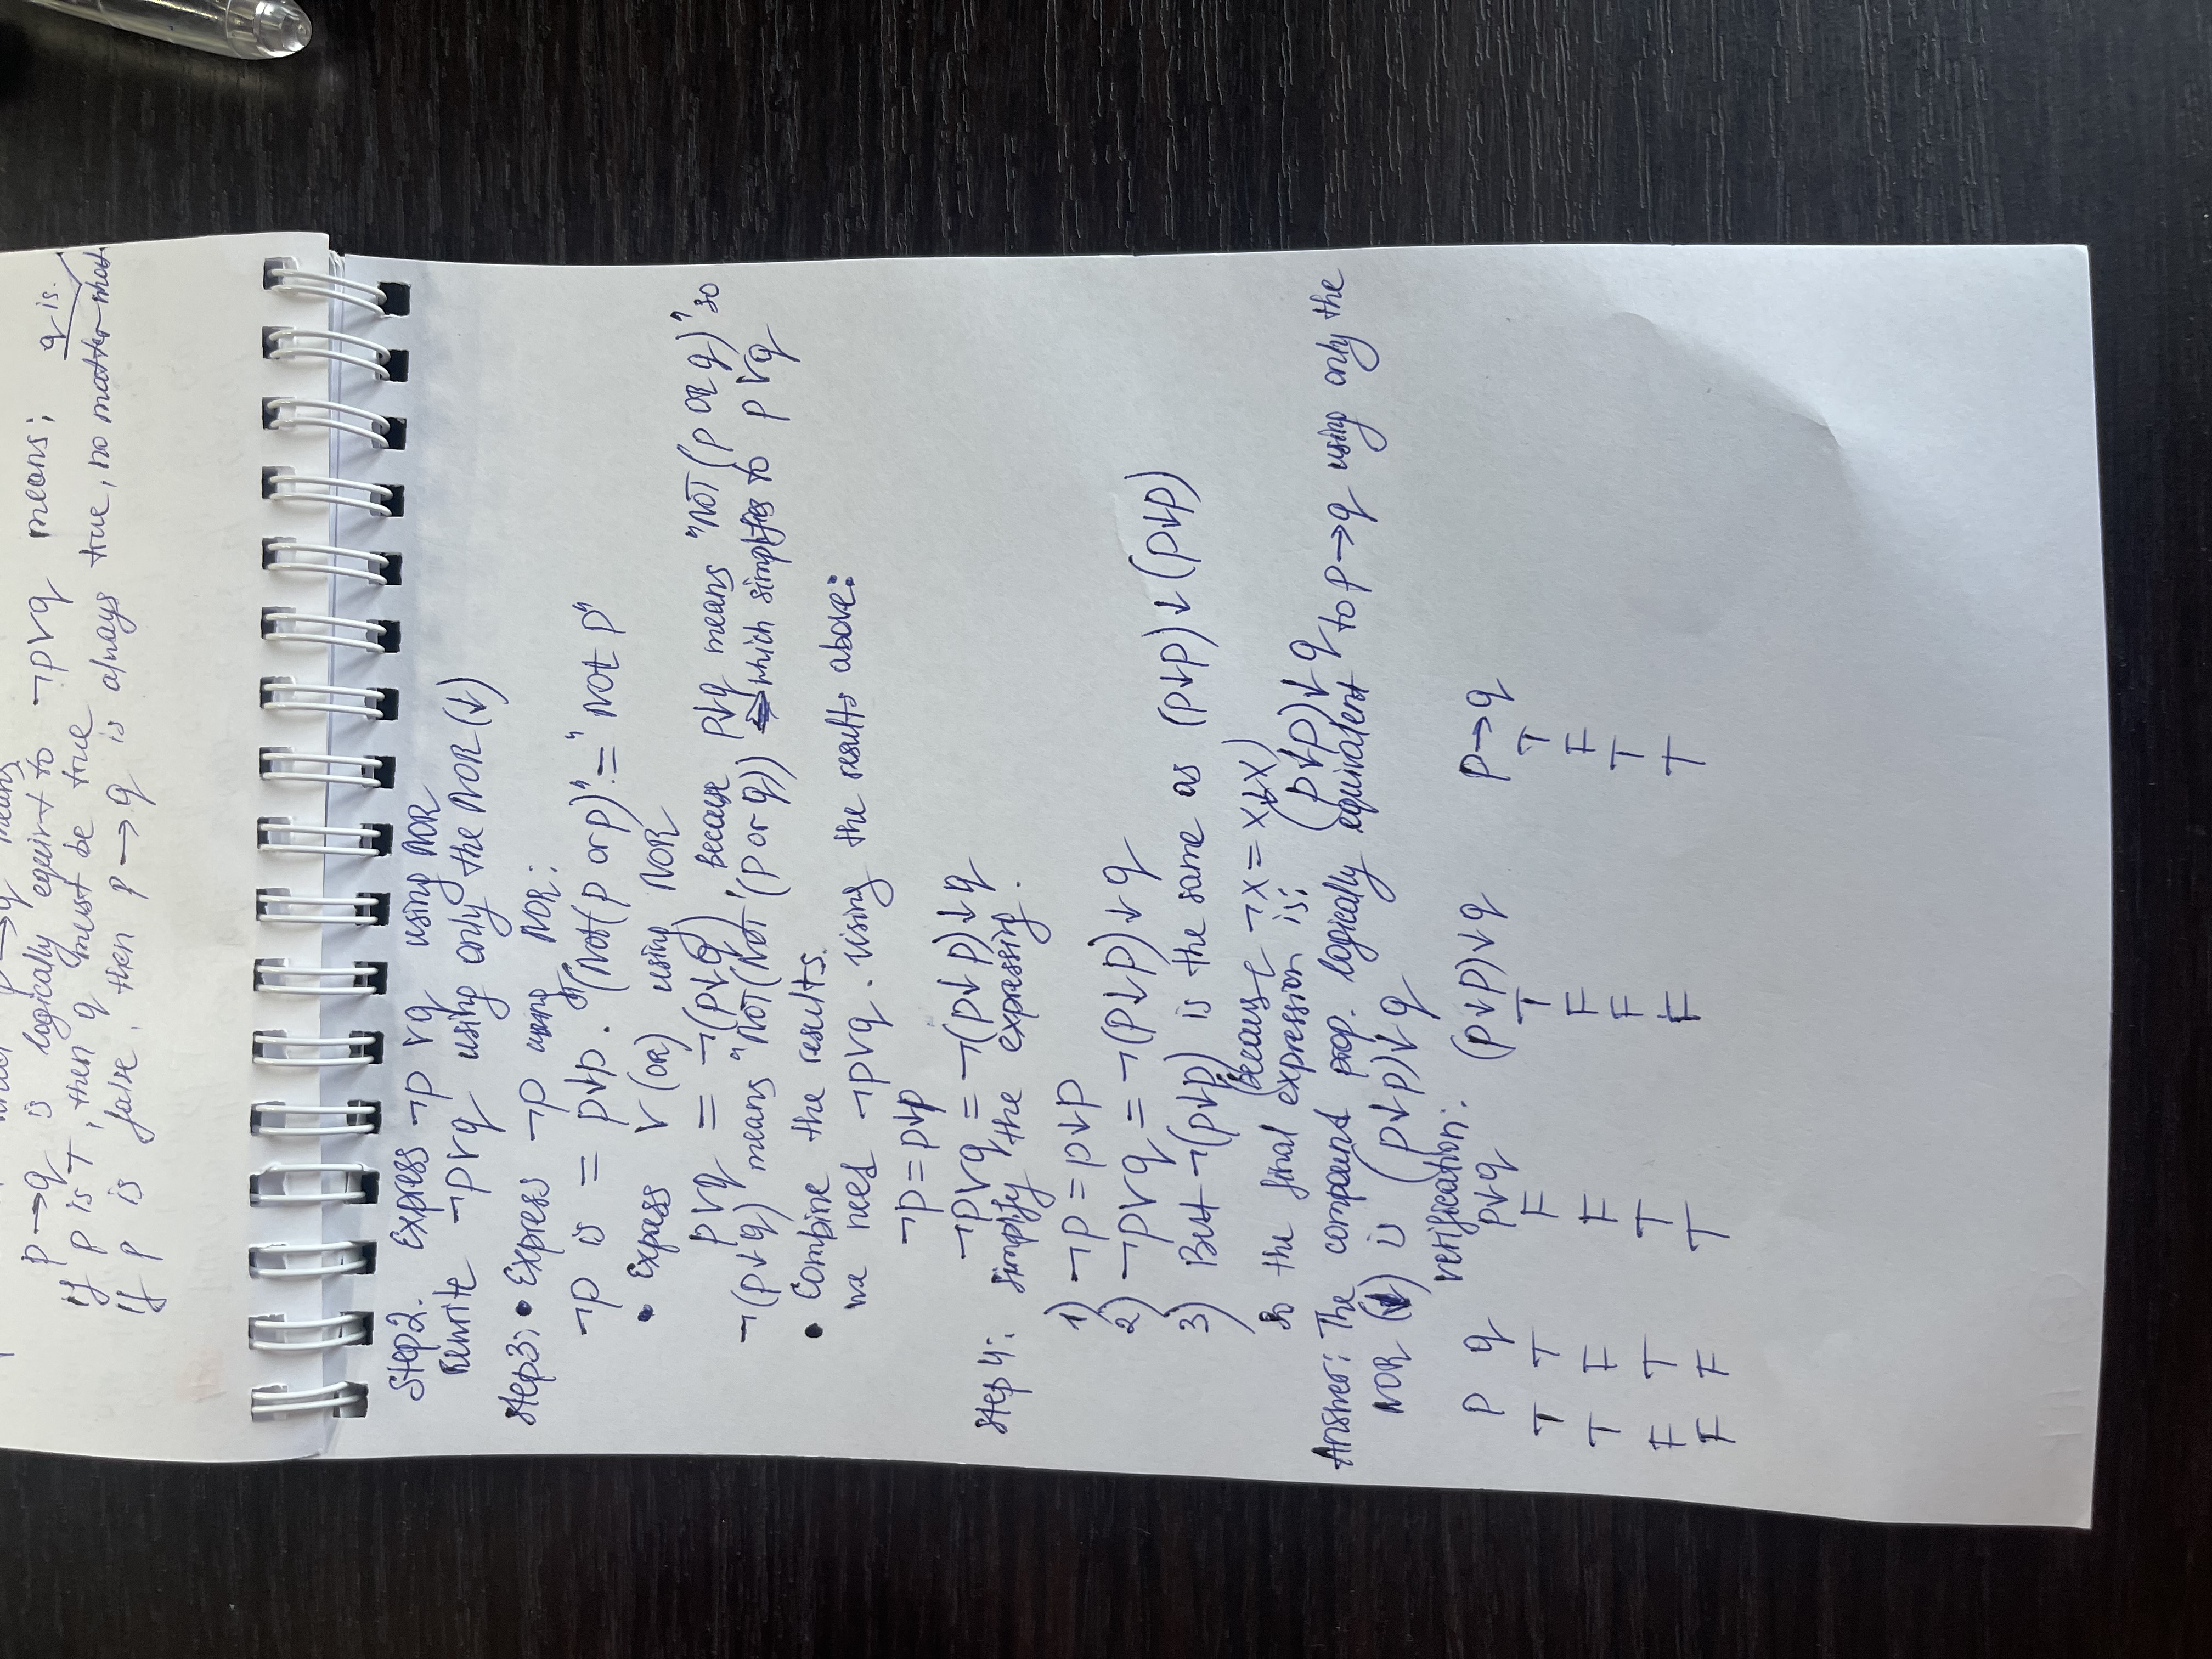 p→q means
p→q is logically equivt to ¬p∨q means; q is.
If p is T, then q must be true
If p is false, then p→q is always true, no matter what
Step2. Express ¬p∨q using NOR
Rewrite ¬p∨q using only the NOR (↓)
Step3: • Express ¬p using NOR:
¬p is = p↓p. "(Not(p or p)" = "Not p"
• Expass ∨ (OR) using NOR
p∨q = ¬(p↓q), because p↓q means "NOT (p OR q)" so
¬(p↓q) means "NOT(NOT (p or q)) which simplifies to p∨q
• Combine the results.
we need ¬p∨q. Using the results above:
¬p=p↓p
¬p∨q = ¬(p↓p)↓q
Step 4: Simplify the expressing.
1) ¬p=p↓p
2) ¬p∨q = ¬(p↓p)↓q
3) But ¬(p↓p) is the same as (p↓p)↓(p↓p)
(because ¬x = x↓x)
so the final expression is: (p↓p)↓q
Answer: The compound prop. logically equivalent to p→q using only the
NOR (↓) is (p↓p)↓q
verification:
p q p↓q (p↓p)↓q p→q
T T F T T
T F F F F
F T T F T
F F T F T